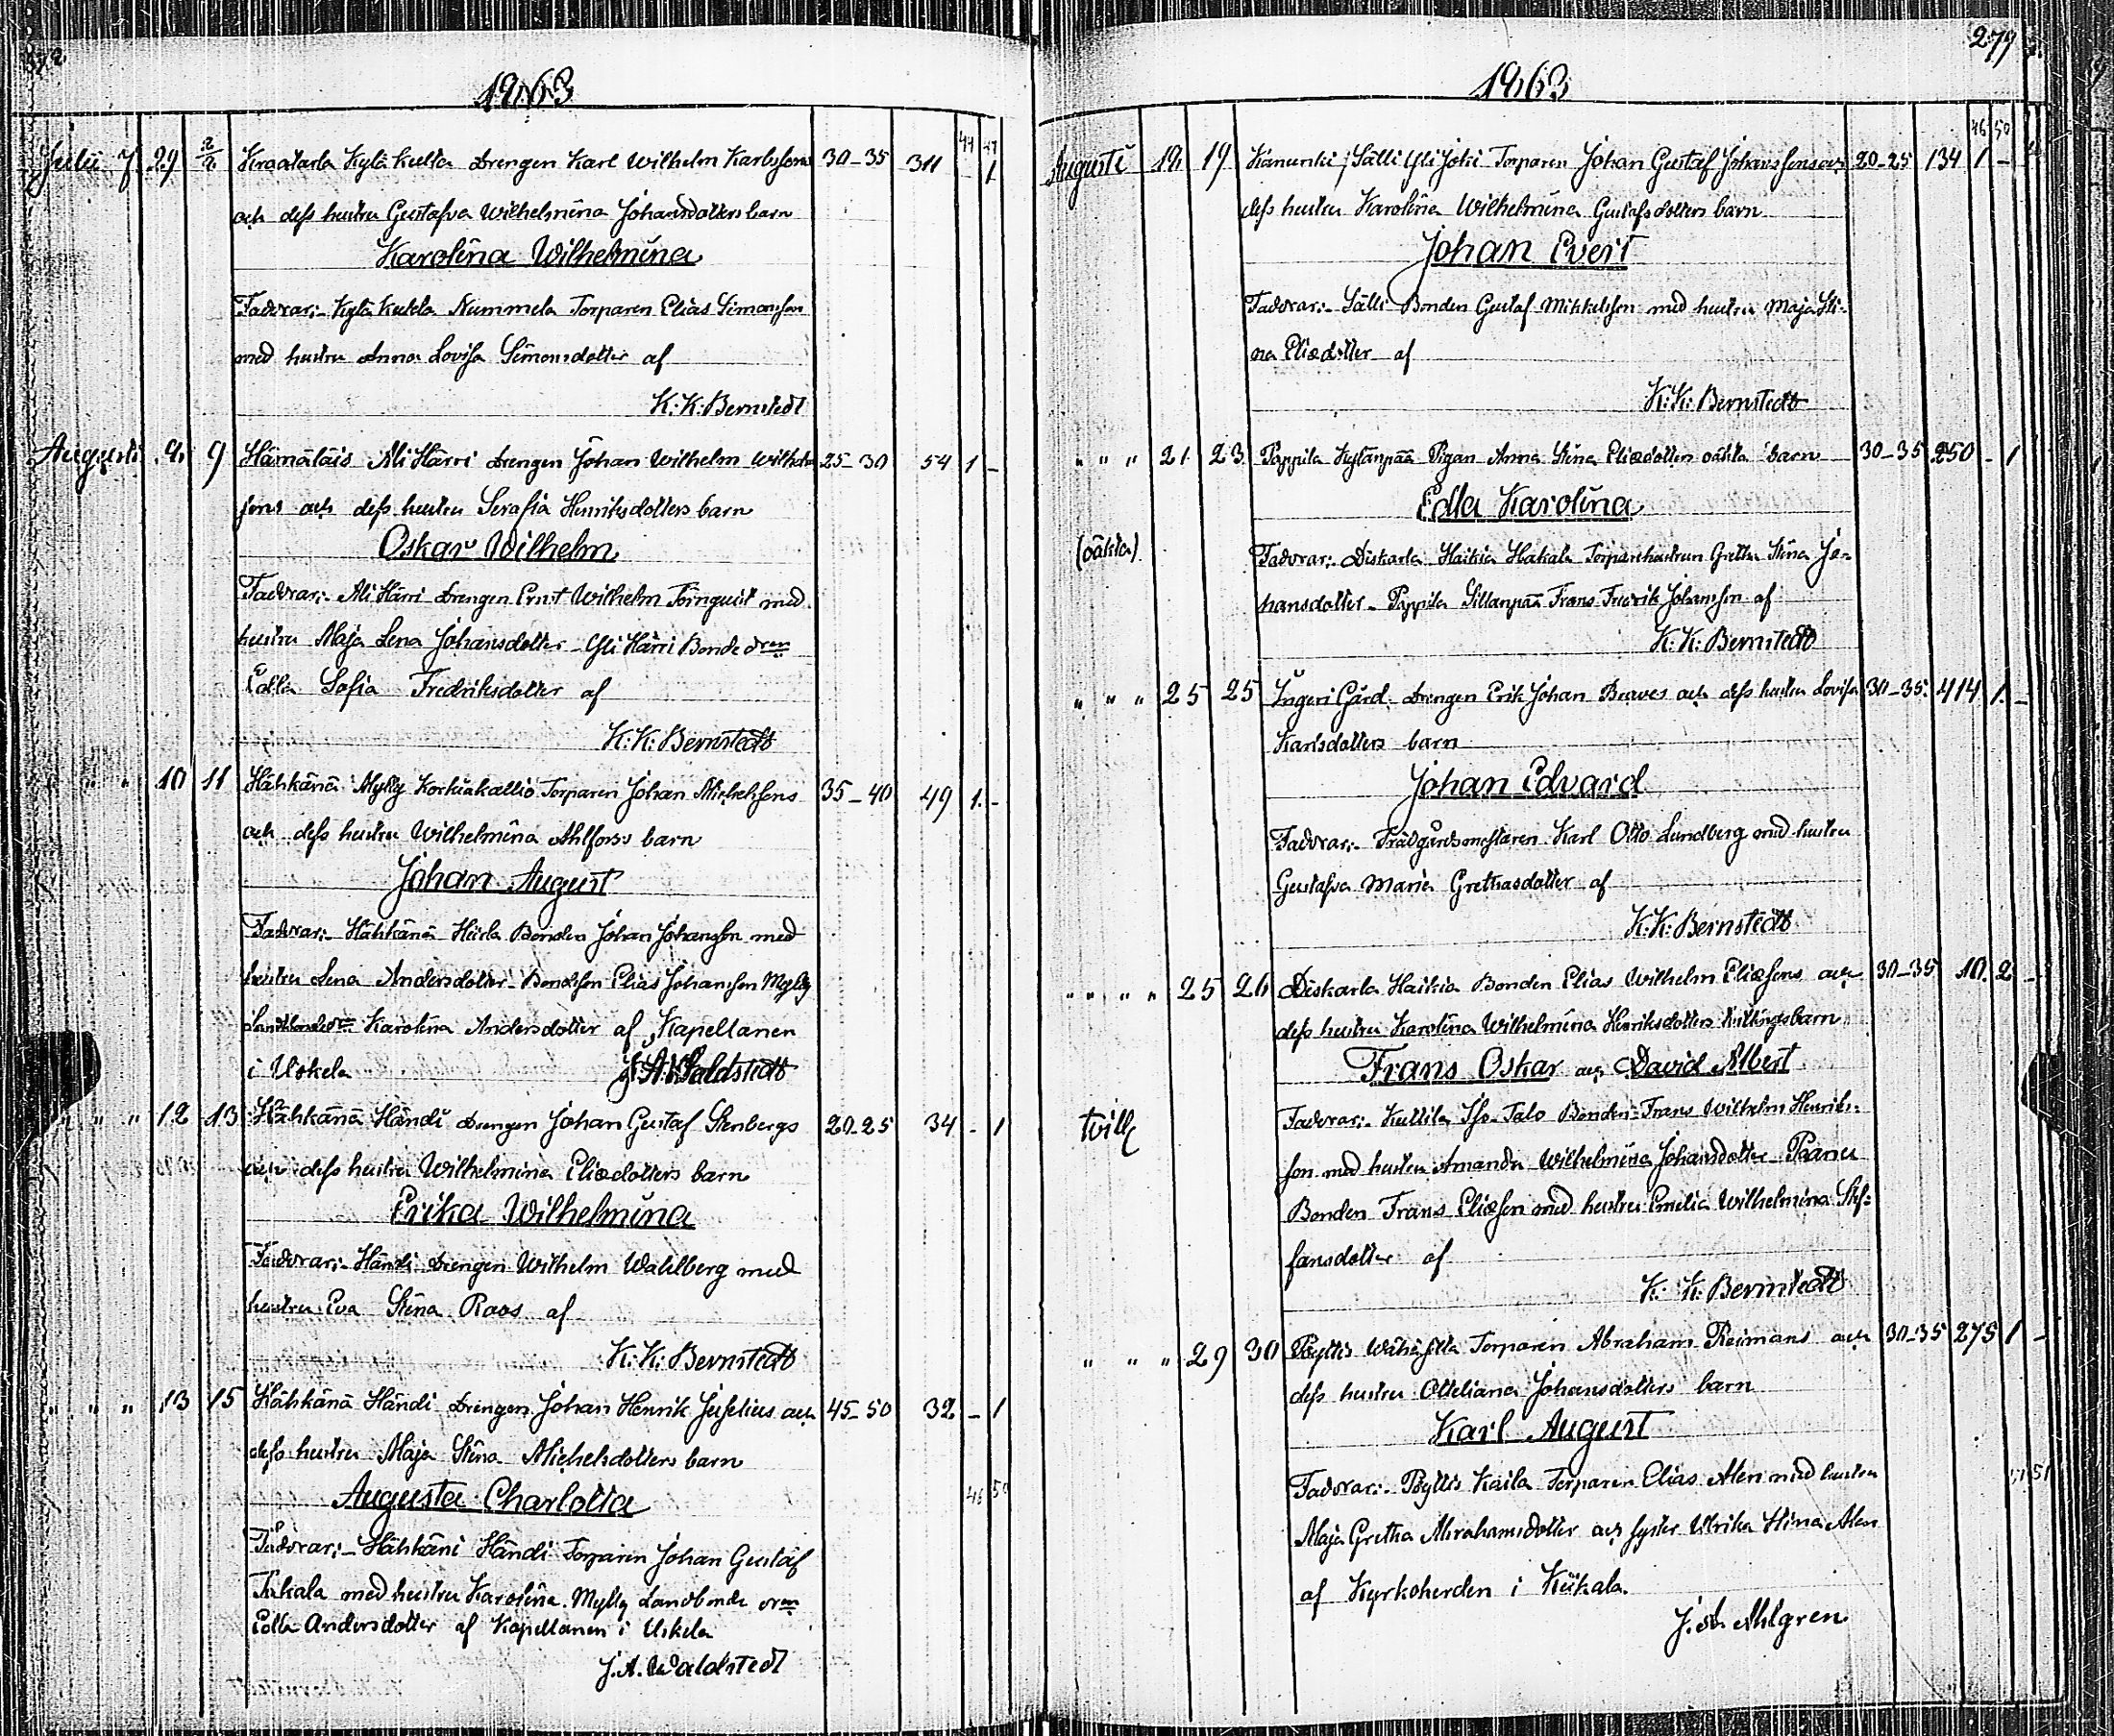 1863
44 47
Julii 7. 29 2/8 Kraatarla Kylä Kulla Drengen Karl Wilhelm Karlssons 30-35 311 1
och dess hustru Gustafva Wilhelmina Johansdotters barn
Karolina Wilhelmina
Faddrar:- Kylä Kulla Nummela Torparen Elias Simonsson
med hustru Anna Lovisa Simonsdotter af
K: K: Bernstedt
Augusti 8. 9 Hämäläis Ali Härri Drengen Johan Wilhelm Wilhelms 25-30 54 1 -
sons och dess hustru Serafia Henriksdotters barn
Oskar Wilhelm
Faddrar:- Ali Härri Drengen Ernst Wilhelm Törnquist med
hustru Maja Lena Johansdotter - Yli Härri Bonde dren
Edla Sofia Fredriksdotter af
K: K: Bernstedt
" " " 10 11 Hähkänä Mylly Korkiakallio Torparen Johan Michelssons 35-40 49 1. -
och dess hustru Wilhelmina Ahlfors's barn
Johan August
Faddrar:- Hähkänä Heirla Bonden Johan Johansson med
hustru Lena Andersdotter - Bondeson Elias Johansson Mylly
Karolina Andersdotter af Kapellanen
i Uskela J. A. Waldstedt
" " " 12 13 Hähkänä Händi Drengen Johan Gustaf Stenbergs 20-25 34 - 1
och dess hustru Wilhelmina Eliædotters barn
Erika Wilhelmina
Faddrar:- Händi Drengen Wilhelm Wahlberg med
hustru Eva Stina Roos af
K: K: Bernstedt
" " " 13 15 Hähkänä Händi Drengen Johan Henrik Juselius och 45-50 32 - 1
dess hustru Maja Stina Michelsdotters barn
46 50
Augusta Charlotta
Faddrar:- Hähkäni Händi Torparen Johan Gustaf
Takala med hustru Karolina. Mylly Landbonde dren
Edla Andersdotter af Kapellanen i Uskela
J. A. Waldstedt
279
1863
46 50
Augusti 18 19 Kanunki Sälli Yli Joki Torparen Johan Gustaf Johanssons och 20-25 134 1 -
dess hustru Karolina Wilhelmina Gustafsdotters barn
Johan Evert
Faddrar:- Sälli Bonden Gustaf Mikkelsson med hustru Maja Sti-
na Eliædotter af
K: K: Bernstedt
" " " 21 23 Pappila Kylänpää Pigan Anna Stina Eliædotters oäkta barn 30-35 250 - 1
Edla Karolina
(oäkta) Faddrar:- Diskarla Haikia Hakala Torparehustrun Gretha Stina Jo-
hansdotter - Pappila Sillanpää Frans Fredrik Johansson af
K: K: Bernstedt
" " " 25 25 Ingeri Gård. Drengen Erik Johan Burves och dess hustru Lovisa 30-35. 414 1. -
Karlsdotters barn
Johan Edvard
Faddrar:- Trädgårdsmästaren Karl Otto Lundberg med hustru
Gustafva Maria Grethasdotter af
K: K: Bernstedt
" " " " 25 26 Diskarla Haikia Bonden Elias Wilhelm Eliæsons och 30-35 10. 2 -
dess hustru Karolina Wilhelmina Henriksdotters tvillingsbarn
Frans Oskar och David Albert
tvill Faddrar:- Kuttila Iso-Talo Bonden Frans Wilhelm Henriks-
son med hustru Amanda Wilhelmina Johansdotter - Paanu
Bonden Frans Eliæson med hustru Emilia Wilhelmina Stef-
fansdotter af
K: K: Bernstedt
" " " 29 30 Pöyttis Wähäsilla Torparen Abraham Reimans och 30-35 275 1 -
dess hustru Otteliana Johansdotters barn
Karl August
51
Faddrar:- Pöyttis Kaila Torparen Elias Alen med hustru
Maja Gretha Abrahamsdotter och syster Ulrika Stina Alen
af Kyrkoherden i Kiikala.
J. A. Ahlgren